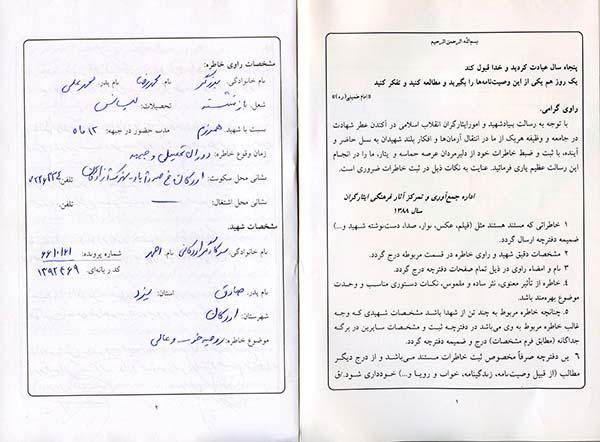 بسم‌الله الرحمن الرحیم
پنجاه سال عبادت کردید و خدا قبول کند
یک روز هم یکی از این وصیت‌نامه‌ها را بگیرید و مطالعه کنید و تفکر کنید
«امام خمینی(ره)»
راوی گرامی.
با توجه به رسالت بنیادشهید و امورایثارگران انقلاب اسلامی در آکندن عطر شهادت
در جامعه و وظیفه هریک از ما در انتقال آرمان‌ها و افکار بلند شهیدان به نسل حاضر و
آینده، با ثبت و ضبط خاطرات خود از دلیرمردان عرصه حماسه و ایثار، ما را در انجام
این رسالت عظیم یاری فرمائید. عنایت به نکات ذیل در ثبت خاطرات ضروری است.
اداره جمع‌آوری و تمرکز آثار فرهنگی ایثارگران
سال ۱۳۸۸
۱ خاطراتی که مستند هستند مثل (فیلم، عکس، نوار، صدا، دست‌نوشته شهید و...)
ضمیمه دفترچه ارسال گردد.
۲ مشخصات دقیق شهید و راوی خاطره در قسمت مربوطه درج گردد.
۳ نام و امضاء راوی در ذیل تمام صفحات دفترچه درج گردد.
۴. خاطره از تأثیر معنوی، نثر ساده و ملموس، نکات دستوری مناسب و وحدت
موضوع بهره‌مند باشد.
۵. چنانچه خاطره مربوط به چند تن از شهدا باشد مشخصات شهیدی که وجه
غالب خاطره مربوط به وی می‌باشد در دفترچه ثبت و مشخصات سایرین در برگه
جداگانه (مطابق فرم مشخصات) درج و ضمیمه دفترچه گردد.
۶ ین دفترچه صرفاً مخصوص ثبت خاطرات مستند می‌باشد و از درج دیگر
مطالب (از قبیل وصیت‌نامه، زندگینامه، خواب و رویا و...) خودداری شود./ق
۱
مشخصات راوی خاطره:
نام خانوادگی: برزگر نام: محمدرضا نام پدر: محمدعلی
شغل: بازنشسته تحصیلات: لیسانس
نسبت با شهید: همرزم مدت حضور در جبهه: ۱۲ ماه
زمان وقوع خاطره: دوران تحصیلی و جبهه
نشانی محل سکونت: اردکان تلفن:
نشانی محل اشتغال: تلفن:
مشخصات شهید:
نام خانوادگی: نام: احمد شماره پرونده:
کد رایانه‌ای:
نام پدر: صادق استان: یزد
شهرستان: اردکان
موضوع خاطره: روحیه خوب و عالی
۲